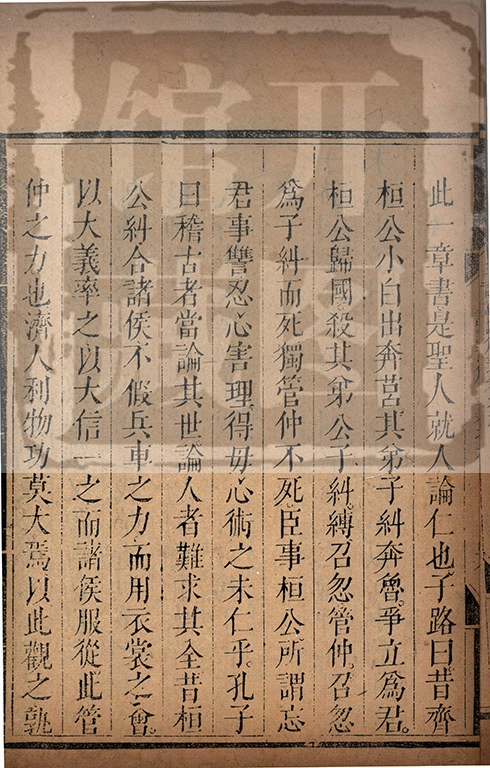 此一章書是聖人就人論仁也子路曰昔齊
桓公小白出奔莒其弟子糾奔魯爭立爲君
桓公歸國殺其弟公子糾縛召忽管仲召忽
爲子糾而死獨管仲不死臣事桓公所謂忘
君事讐忍心害理得毋心術之未仁乎孔子
曰稽古者當論其世論人者難求其全昔桓
公糾合諸侯不假兵車之力而用衣裳之會
以大義率之以大信一之而諸侯服從此管
仲之力也濟人利物功莫大焉以此觀之孰